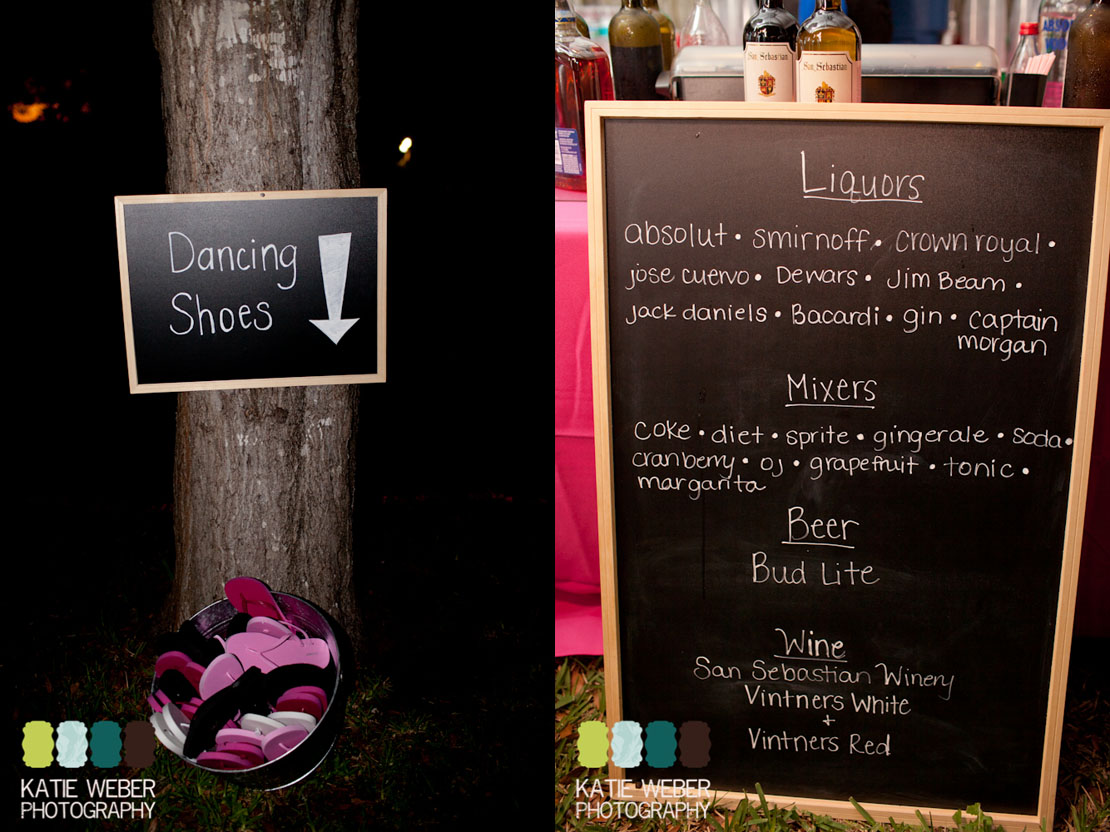 Dancing
Shoes
KATIE WEBER
PHOTOGRAPHY
San Sebastian
San Sebastian
Liquors
absolut • smirnoff • crown royal •
jose cuervo • Dewars • Jim Beam •
jack daniels • Bacardi • gin • captain
morgan
Mixers
coke • diet • sprite • gingerale • soda •
cranberry • oj • grapefruit • tonic •
margarita
Beer
Bud Lite
Wine
San Sebastian Winery
Vintners White
+
Vintners Red
KATIE WEBER
PHOTOGRAPHY